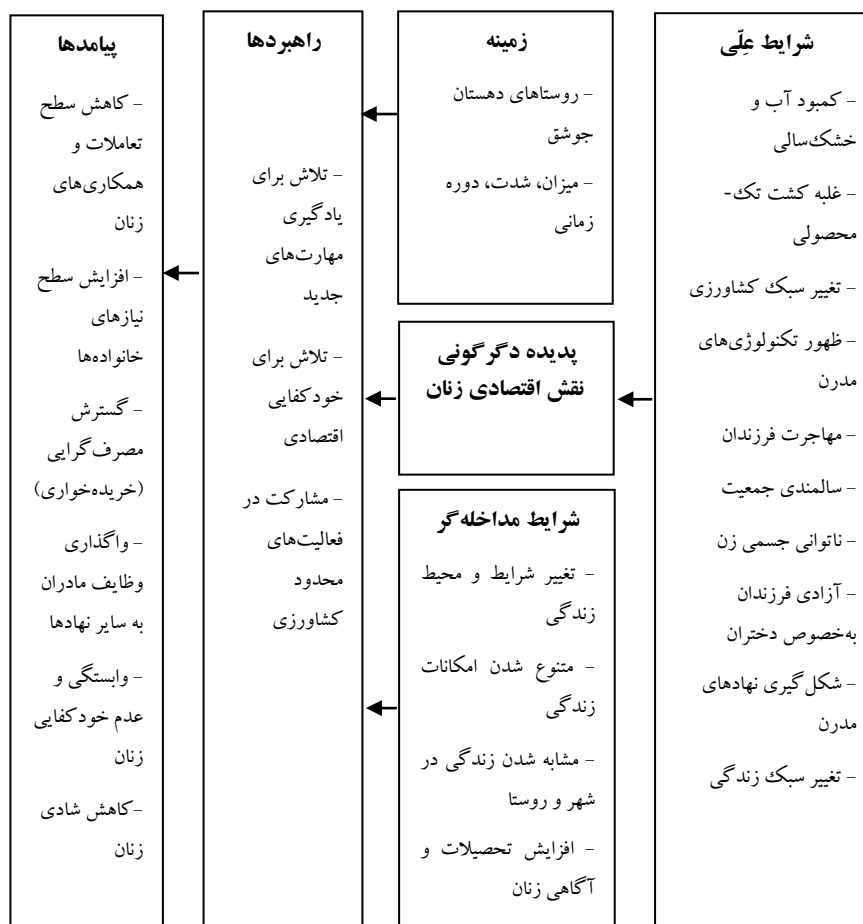 شرایط عِلّی
- کمبود آب و
خشک‌سالی
- غلبه کشت تک-
محصولی
- تغییر سبک کشاورزی
- ظهور تکنولوژی‌های
مدرن
- مهاجرت فرزندان
- سالمندی جمعیت
- ناتوانی جسمی زن
- آزادی فرزندان
به‌خصوص دختران
- شکل‌گیری نهادهای
مدرن
- تغییر سبک زندگی
زمینه
- روستاهای دهستان
جوشق
- میزان، شدت، دوره
زمانی
پدیده دگرگونی
نقش اقتصادی زنان
شرایط مداخله‌گر
- تغییر شرایط و محیط
زندگی
- متنوع شدن امکانات
زندگی
- مشابه شدن زندگی در
شهر و روستا
- افزایش تحصیلات و
آگاهی زنان
راهبردها
- تلاش برای
یادگیری
مهارت‌های
جدید
- تلاش برای
خودکفایی
اقتصادی
- مشارکت در
فعالیت‌های
محدود
کشاورزی
پیامدها
- کاهش سطح
تعاملات و
همکاری‌های
زنان
- افزایش سطح
نیازهای
خانواده‌ها
- گسترش
مصرف‌گرایی
(خریده‌خواری)
- واگذاری
وظایف مادران
به سایر نهادها
- وابستگی و
عدم خودکفایی
زنان
-کاهش شادی
زنان